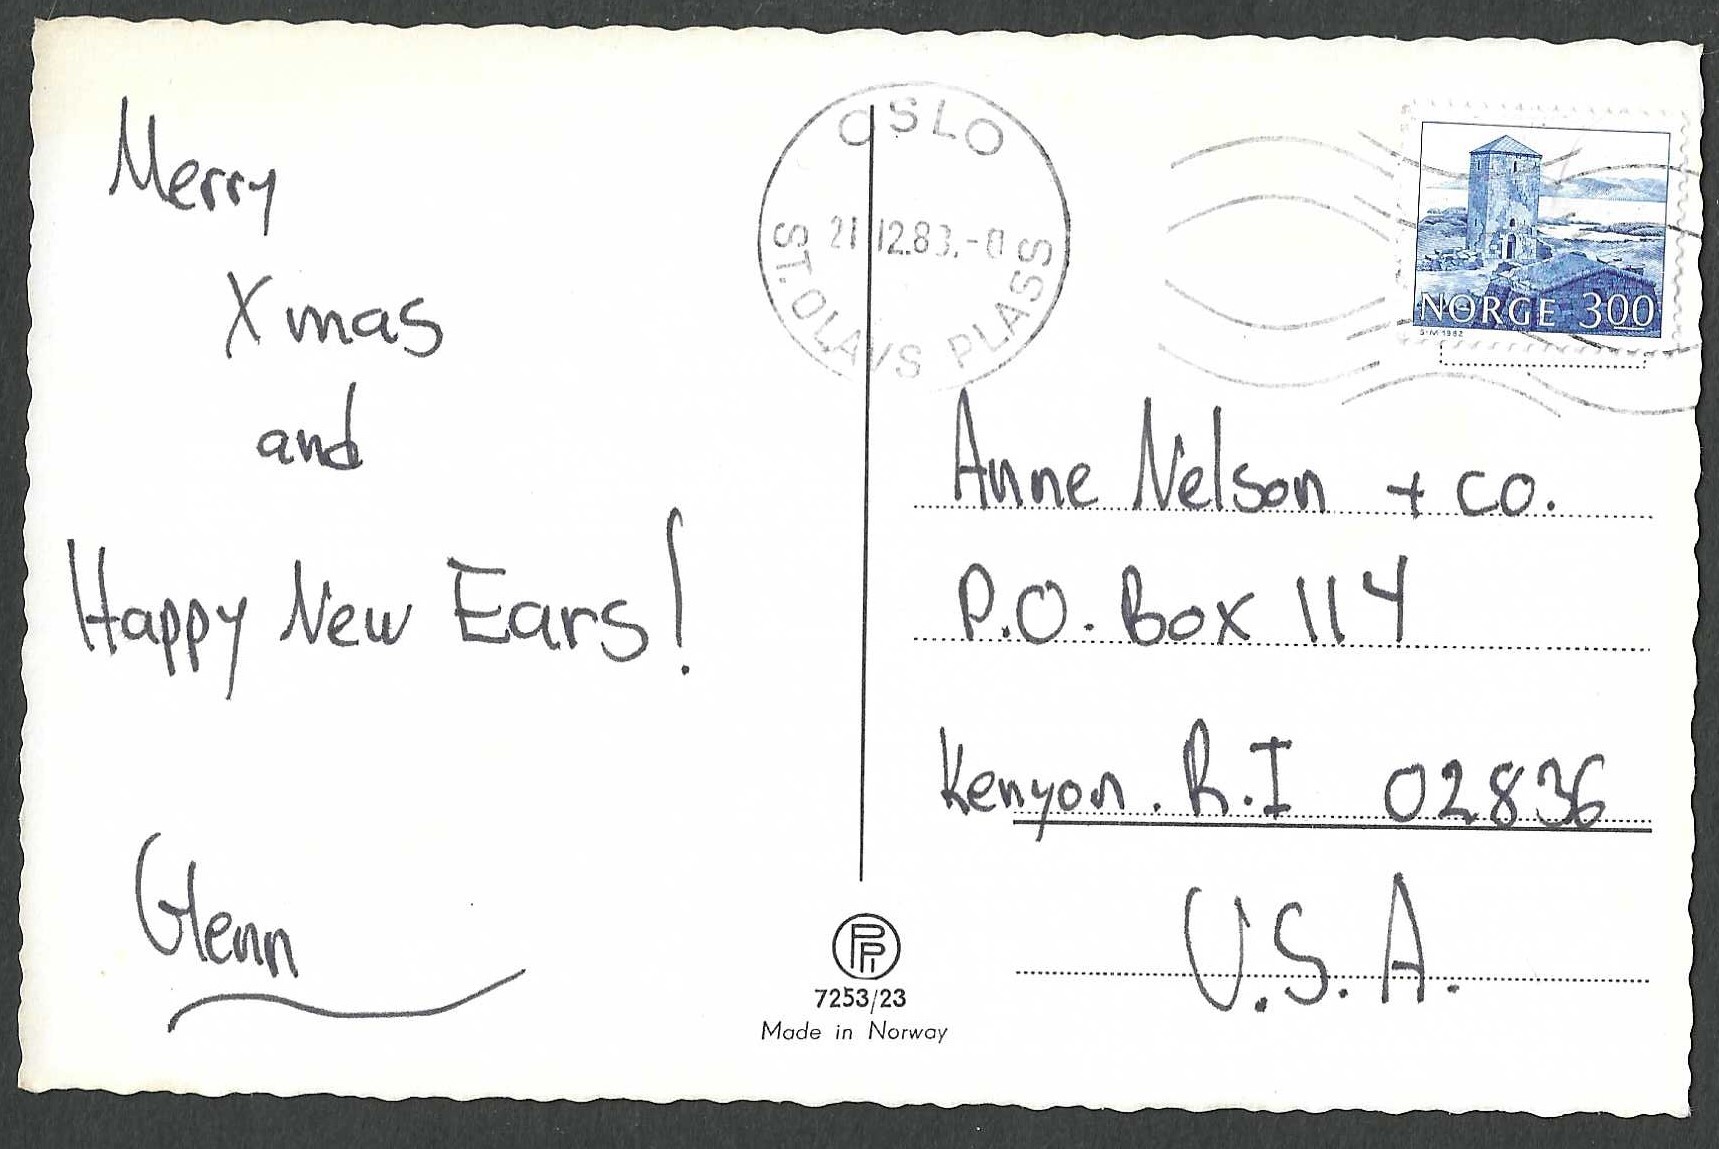 Merry
Xmas
and
Happy New Ears!
Glenn
OSLO
21 12.83.-0
ST. OLAVS PLASS
NORGE 300
S·M 1982
Anne Nelson + co.
P.O. Box 114
Kenyon. R.I 02836
U.S.A.
PP
7253/23
Made in Norway